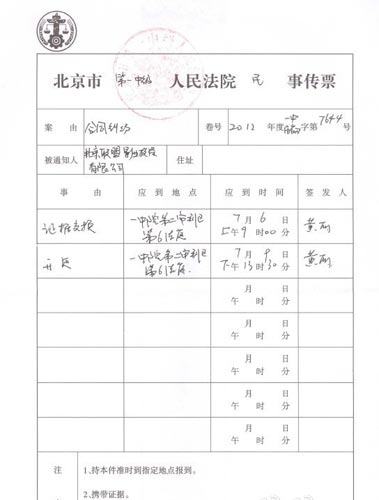 北京市 第一中级 人民法院 民 事传票
案 由 合同纠纷 卷号 2012 年度 一中 字第 7644 号
被通知人 北京联盟影业投资有限公司 住址
事 由 应 到 地 点 应 到 时 间 签 发 人
证据交换 一中院第二审判区 7 月 6 日
第61法庭 上午 9 时 00 分
开庭 一中院第二审判区 7 月 9 日
第61法庭 下午 13 时 30 分
月 日
午 时 分
月 日
午 时 分
月 日
午 时 分
月 日
午 时 分
月 日
午 时 分
注 1、持本件准时到指定地点报到。
2、携带证据。